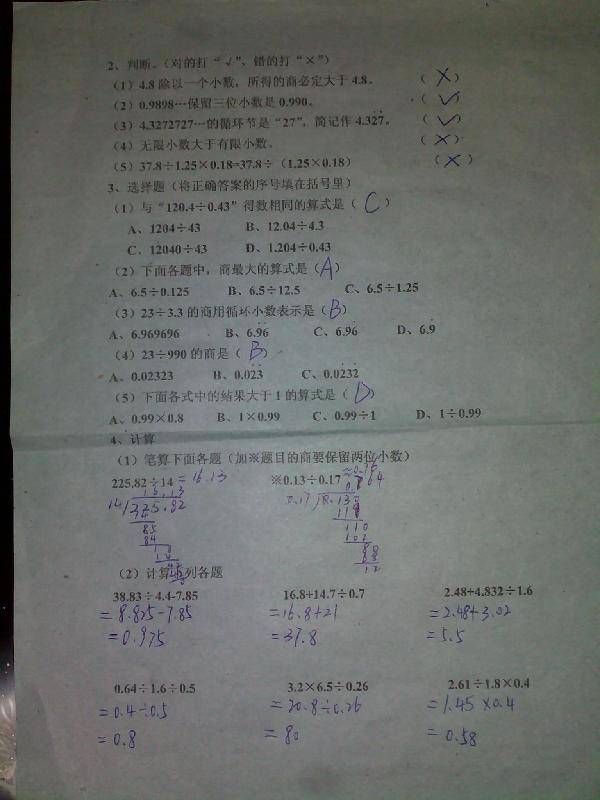 2、判断。（对的打“√”，错的打“×”）
（1）4.8除以一个小数，所得的商必定大于4.8。 （×）
（2）0.9898…保留三位小数是0.990。 （√）
（3）4.3272727…的循环节是“27”，简记作4.32̇7̇。 （√）
（4）无限小数大于有限小数。 （×）
（5）37.8÷1.25×0.18=37.8÷（1.25×0.18） （×）
3、选择题（将正确答案的序号填在括号里）
（1）与“120.4÷0.43”得数相同的算式是（C）
A、1204÷43 B、12.04÷4.3
C、12040÷43 D、1.204÷0.43
（2）下面各题中，商最大的算式是（A）
A、6.5÷0.125 B、6.5÷12.5 C、6.5÷1.25
（3）23÷3.3的商用循环小数表示是（B）
A、6.969696 B、6.9̇6̇ C、6.96̇ D、6.9̇
（4）23÷990的商是（B）
A、0.02323 B、0.02̇3̇ C、0.02̇32̇
（5）下面各式中的结果大于1的算式是（D）
A、0.99×0.8 B、1×0.99 C、0.99÷1 D、1÷0.99
4、计算
（1）笔算下面各题（加※题目的商要保留两位小数）
225.82÷14 =16.13 ※0.13÷0.17 ≈0.76
16.13
14
85
84
110
102
（2）计算下列各题
38.83÷4.4-7.85 16.8+14.7÷0.7 2.48+4.832÷1.6
=8.825-7.85 =16.8+21 =2.48+3.02
=0.975 =37.8 =5.5
0.64÷1.6÷0.5 3.2×6.5÷0.26 2.61÷1.8×0.4
=0.4÷0.5 =20.8÷0.26 =1.45×0.4
=0.8 =80 =0.58